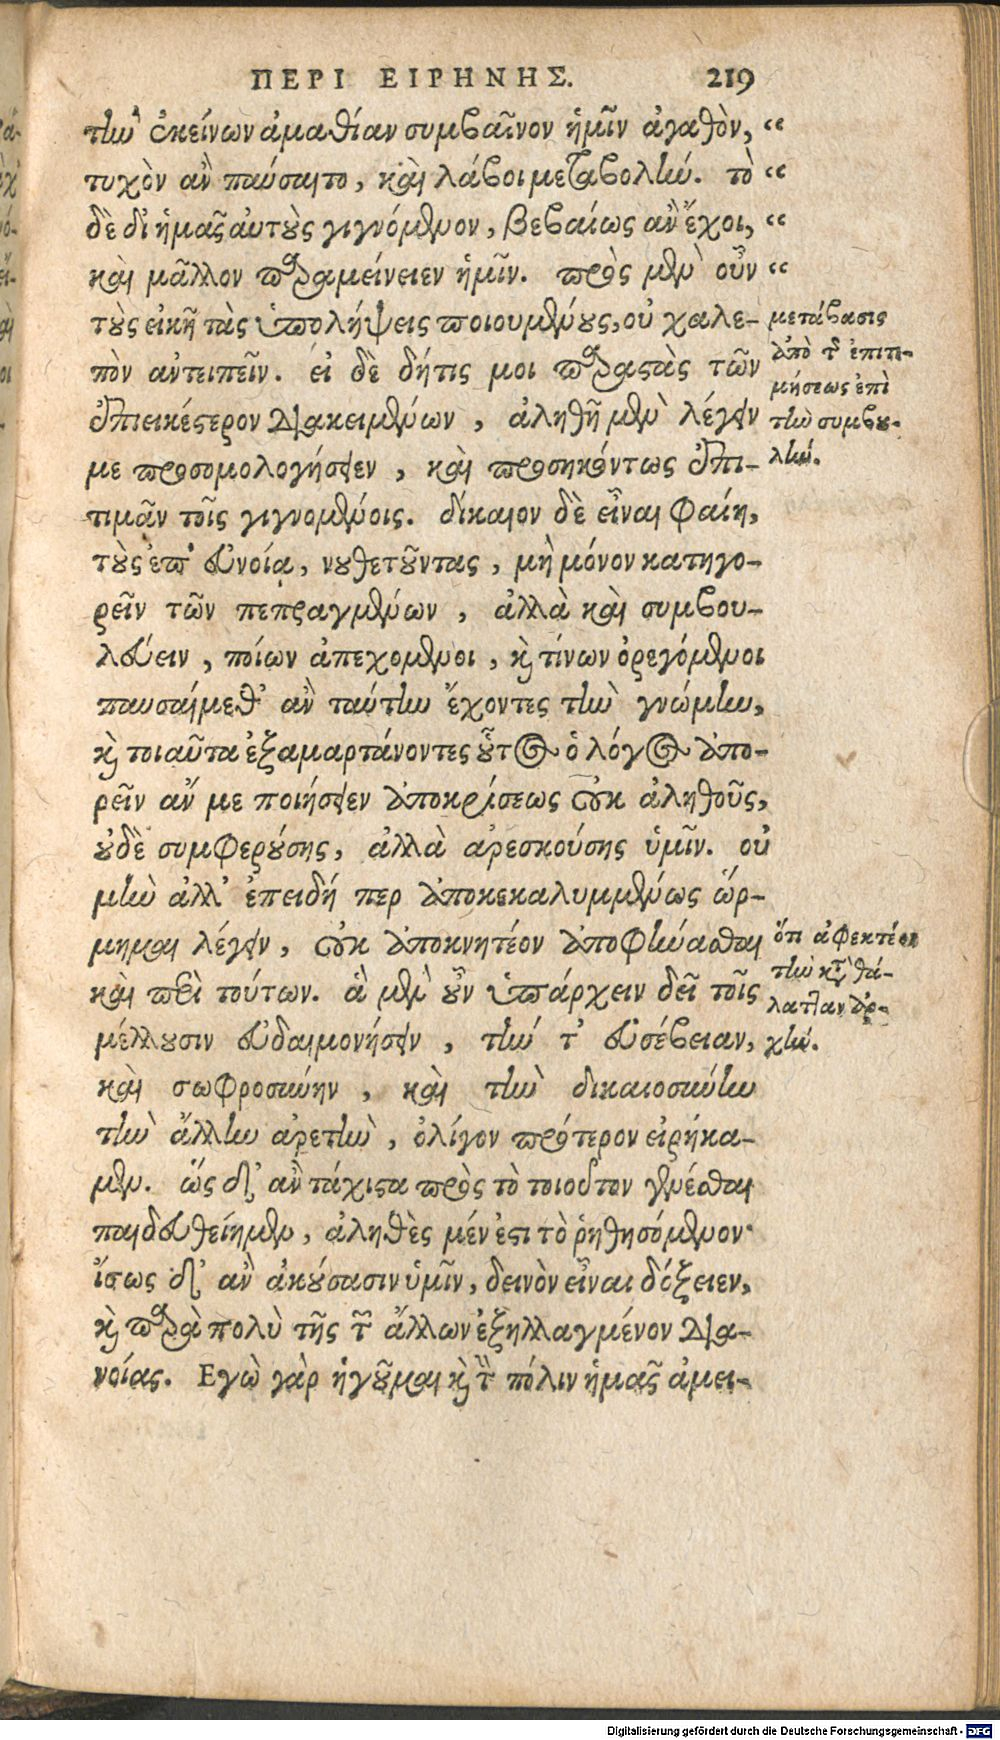 ΠΕΡΙ ΕΙΡΗΝΗΣ. 219
τὴν ἐκείνων ἀμαθίαν συμβαῖνον ἡμῖν ἀγαθὸν, “
τυχὸν ἂν παύσαιτο, καὶ λάβοι μεταβολήν. τὸ “
δὲ δι’ ἡμᾶς αὐτοὺς γιγνόμενον, βεβαίως ἂν ἔχοι, “
καὶ μᾶλλον παραμείνειεν ἡμῖν. πρὸς μὲν οὖν “
τοὺς εἰκῆ τὰς ὑπολήψεις ποιουμένους, οὐ χαλε-
πὸν ἀντειπεῖν. εἰ δὲ δήτις μοι παραστὰς τῶν
ἐπιεικέστερον διακειμένων, ἀληθῆ μὲν λέγειν
με προσομολογήσειεν, καὶ προσηκόντως ἐπι-
τιμᾶν τοῖς γιγνομένοις. δίκαιον δὲ εἶναι φαίη,
τοὺς ἐπ’ εὐνοίᾳ, νουθετοῦντας, μὴ μόνον κατηγο-
ρεῖν τῶν πεπραγμένων, ἀλλὰ καὶ συμβου-
λεύειν, ποίων ἀπεχόμενοι, καὶ τίνων ὀρεγόμενοι
παυσαίμεθ’ ἂν ταύτην ἔχοντες τὴν γνώμην,
καὶ τοιαῦτα ἐξαμαρτάνοντες οὗτος ὁ λόγος ἀπο-
ρεῖν ἄν με ποιήσειεν ἀποκρίσεως οὐκ ἀληθοῦς,
οὐδὲ συμφερούσης, ἀλλὰ ἀρεσκούσης ὑμῖν. οὐ
μὴν ἀλλ’ ἐπειδή περ ἀποκεκαλυμμένως ὥρ-
μημαι λέγειν, οὐκ ἀποκνητέον ἀποφήνασθαι
καὶ περὶ τούτων. ἃ μὲν οὖν ὑπάρχειν δεῖ τοῖς
μέλλουσιν εὐδαιμονήσειν, τήν τ’ εὐσέβειαν,
καὶ σωφροσύνην, καὶ τὴν δικαιοσύνην
τὴν ἄλλην ἀρετὴν, ὀλίγον πρότερον εἰρήκα-
μεν. ὥς δ’ ἂν τάχιστα πρὸς τὸ τοιοῦτον γενέσθαι
παιδευθείημεν, ἀληθὲς μέν ἐστι τὸ ῥηθησόμενον·
ἴσως δ’ ἂν ἀκούσασιν ὑμῖν, δεινὸν εἶναι δόξειεν,
καὶ παρὰ πολὺ τῆς τῶν ἄλλων ἐξηλλαγμένον δια-
νοίας. Εγὼ γὰρ ἡγοῦμαι καὶ τὴν πόλιν ἡμᾶς ἀμει-
μετάβασις
ἀπὸ τῆς ἐπιτι-
μήσεως ἐπὶ
τὴν συμβου-
λήν.
ὅτι ἀφεκτέον
τὴν κατὰ θά-
λατταν ἀρ-
χήν.
Digitalisierung gefördert durch die Deutsche Forschungsgemeinschaft - DFG